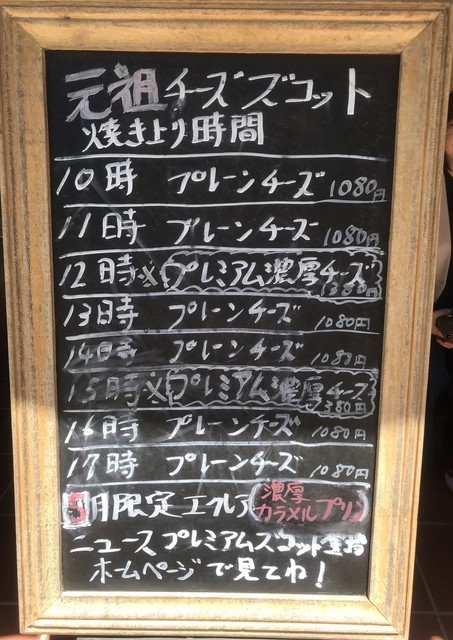 元祖チーズズコット
焼き上り時間
10時 プレーンチーズ 1080円
11時 プレーンチーズ 1080円
12時 プレミアム濃厚チーズ 1380円
13時 プレーンチーズ 1080円
14時 プレーンチーズ 1080円
15時 プレミアム濃厚チーズ 1380円
16時 プレーンチーズ 1080円
17時 プレーンチーズ 1080円
月限定エクレア 濃厚カラメルプリン
ニュースプレミアムズコット
ホームページで見てね!